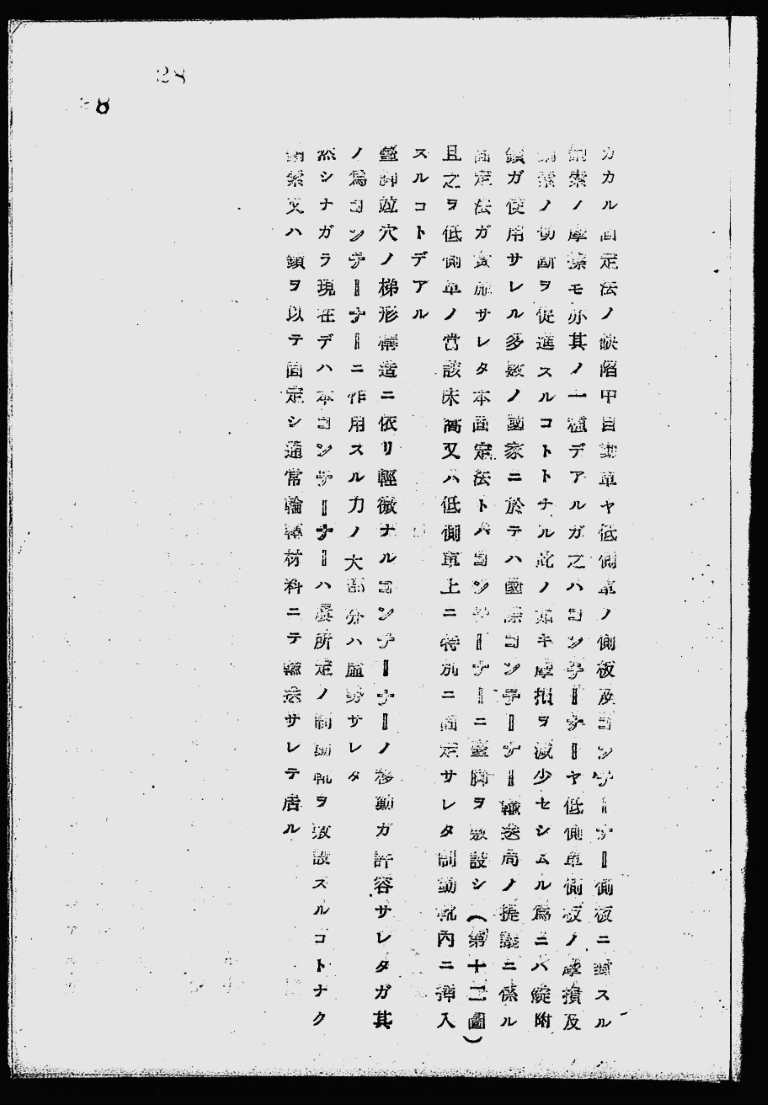 28
8
カカル固定法ノ缺陷中自動車ヤ低側車ノ側板及コンテーナー側板ニ對スル
鋼索ノ摩擦モ亦其ノ一種デアルガ之ハコンテーナーヤ低側車側板ノ摩損及
鋼索ノ切斷ヲ促進スルコトトナル此ノ如キ摩損ヲ減少セシムル爲ニハ錠附
鎖ガ使用サレル多數ノ國家ニ於テハ國際コンテーナー輸送局ノ提議ニ係ル
固定法ガ實施サレタ本固定法トハコンテーナーニ臺脚ヲ敷設シ(第十二圖)
且之ヲ低側車ノ當該床高又ハ低側車上ニ特別ニ固定サレタ制動靴內ニ挿入
スルコトデアル
臺脚並穴ノ梯形構造ニ依リ輕微ナルコンテーナーノ移動ガ許容サレタガ其
ノ爲コンテーナーニ作用スル力ノ大部分ハ虛勢サレタ
然シナガラ現在デハ本コンテーナーハ屢所定ノ制動靴ヲ敷設スルコトナク
鋼索又ハ鎖ヲ以テ固定シ通常輪轉材料ニテ輸送サレテ居ル